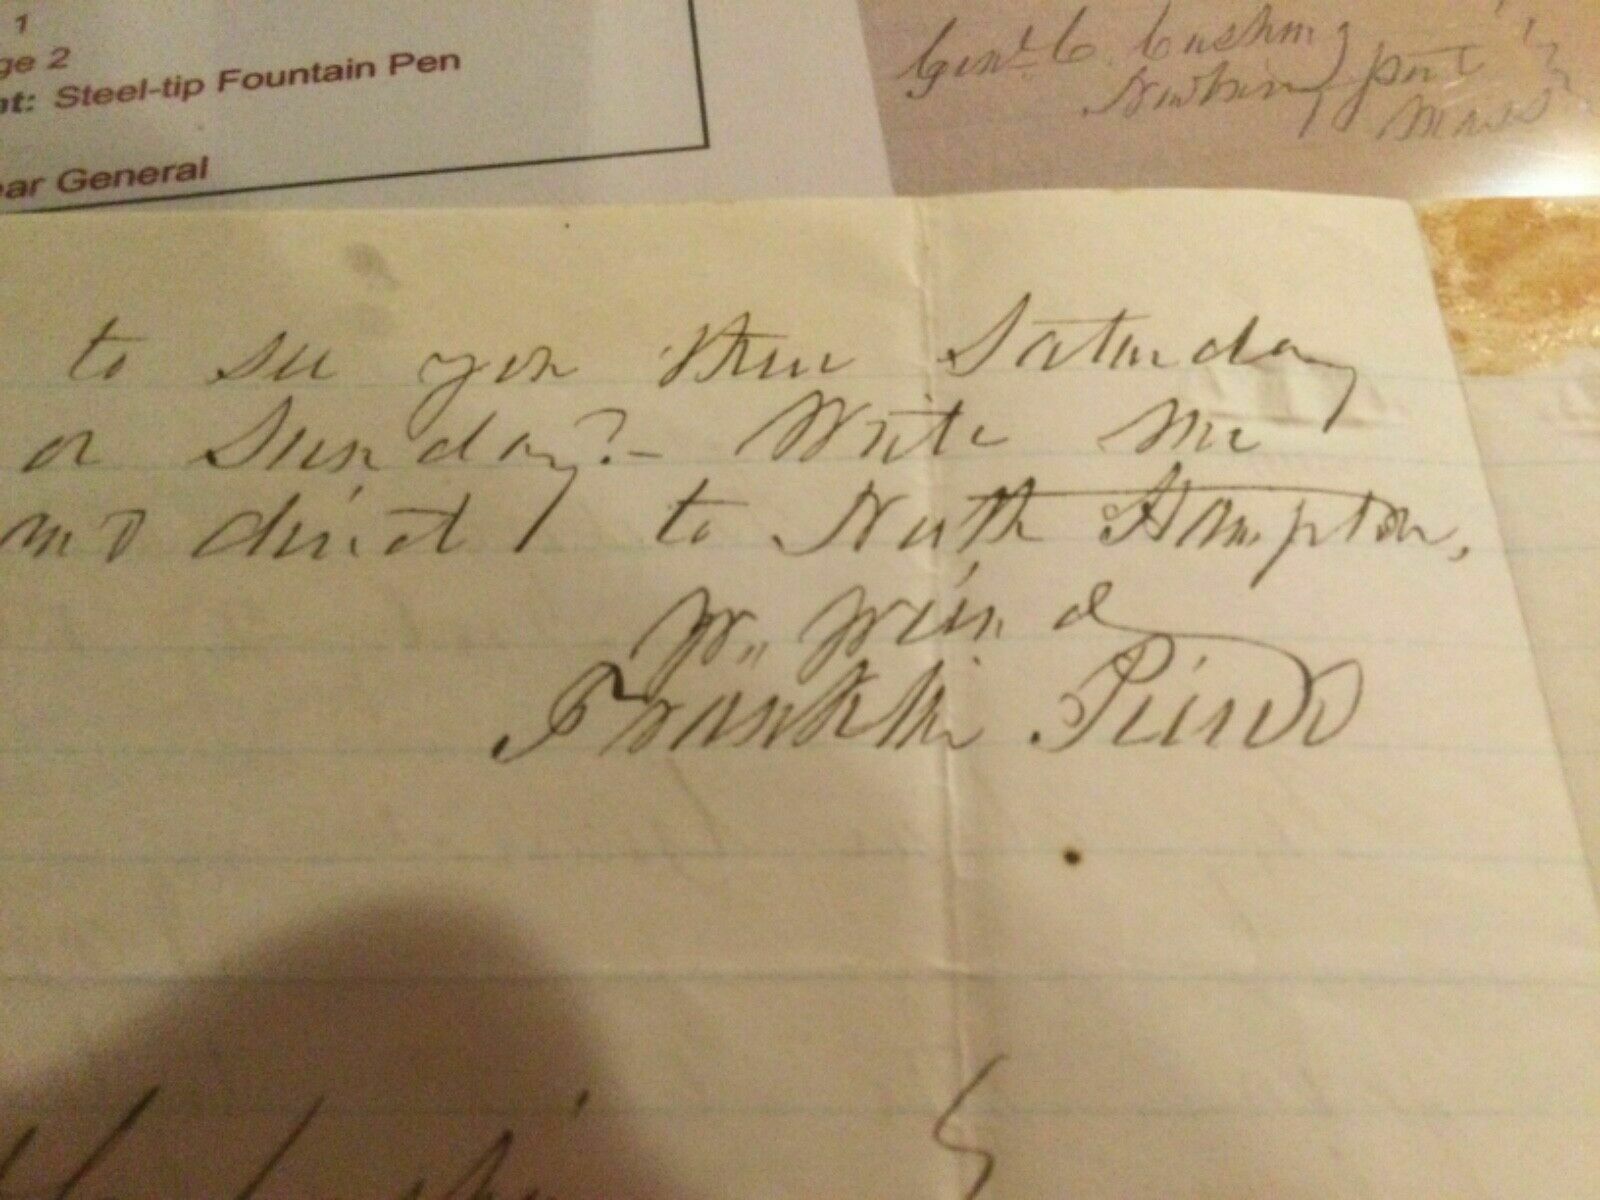 1
ge 2
nt: Steel-tip Fountain Pen
ear General
Genl. C. Cushing
Newburyport
Mass
to see you there Saturday
or Sunday?- Write me
and direct to North Hampton,
Yr. friend
Franklin Pierce